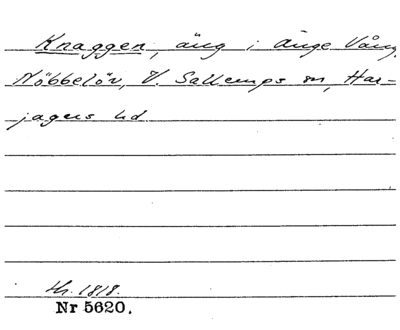 Knaggen, äng i Änge Vång,
Nöbbelöv, V. Sallerups sn, Har-
jagers hd
Hr. 1818.
Nr 5620.